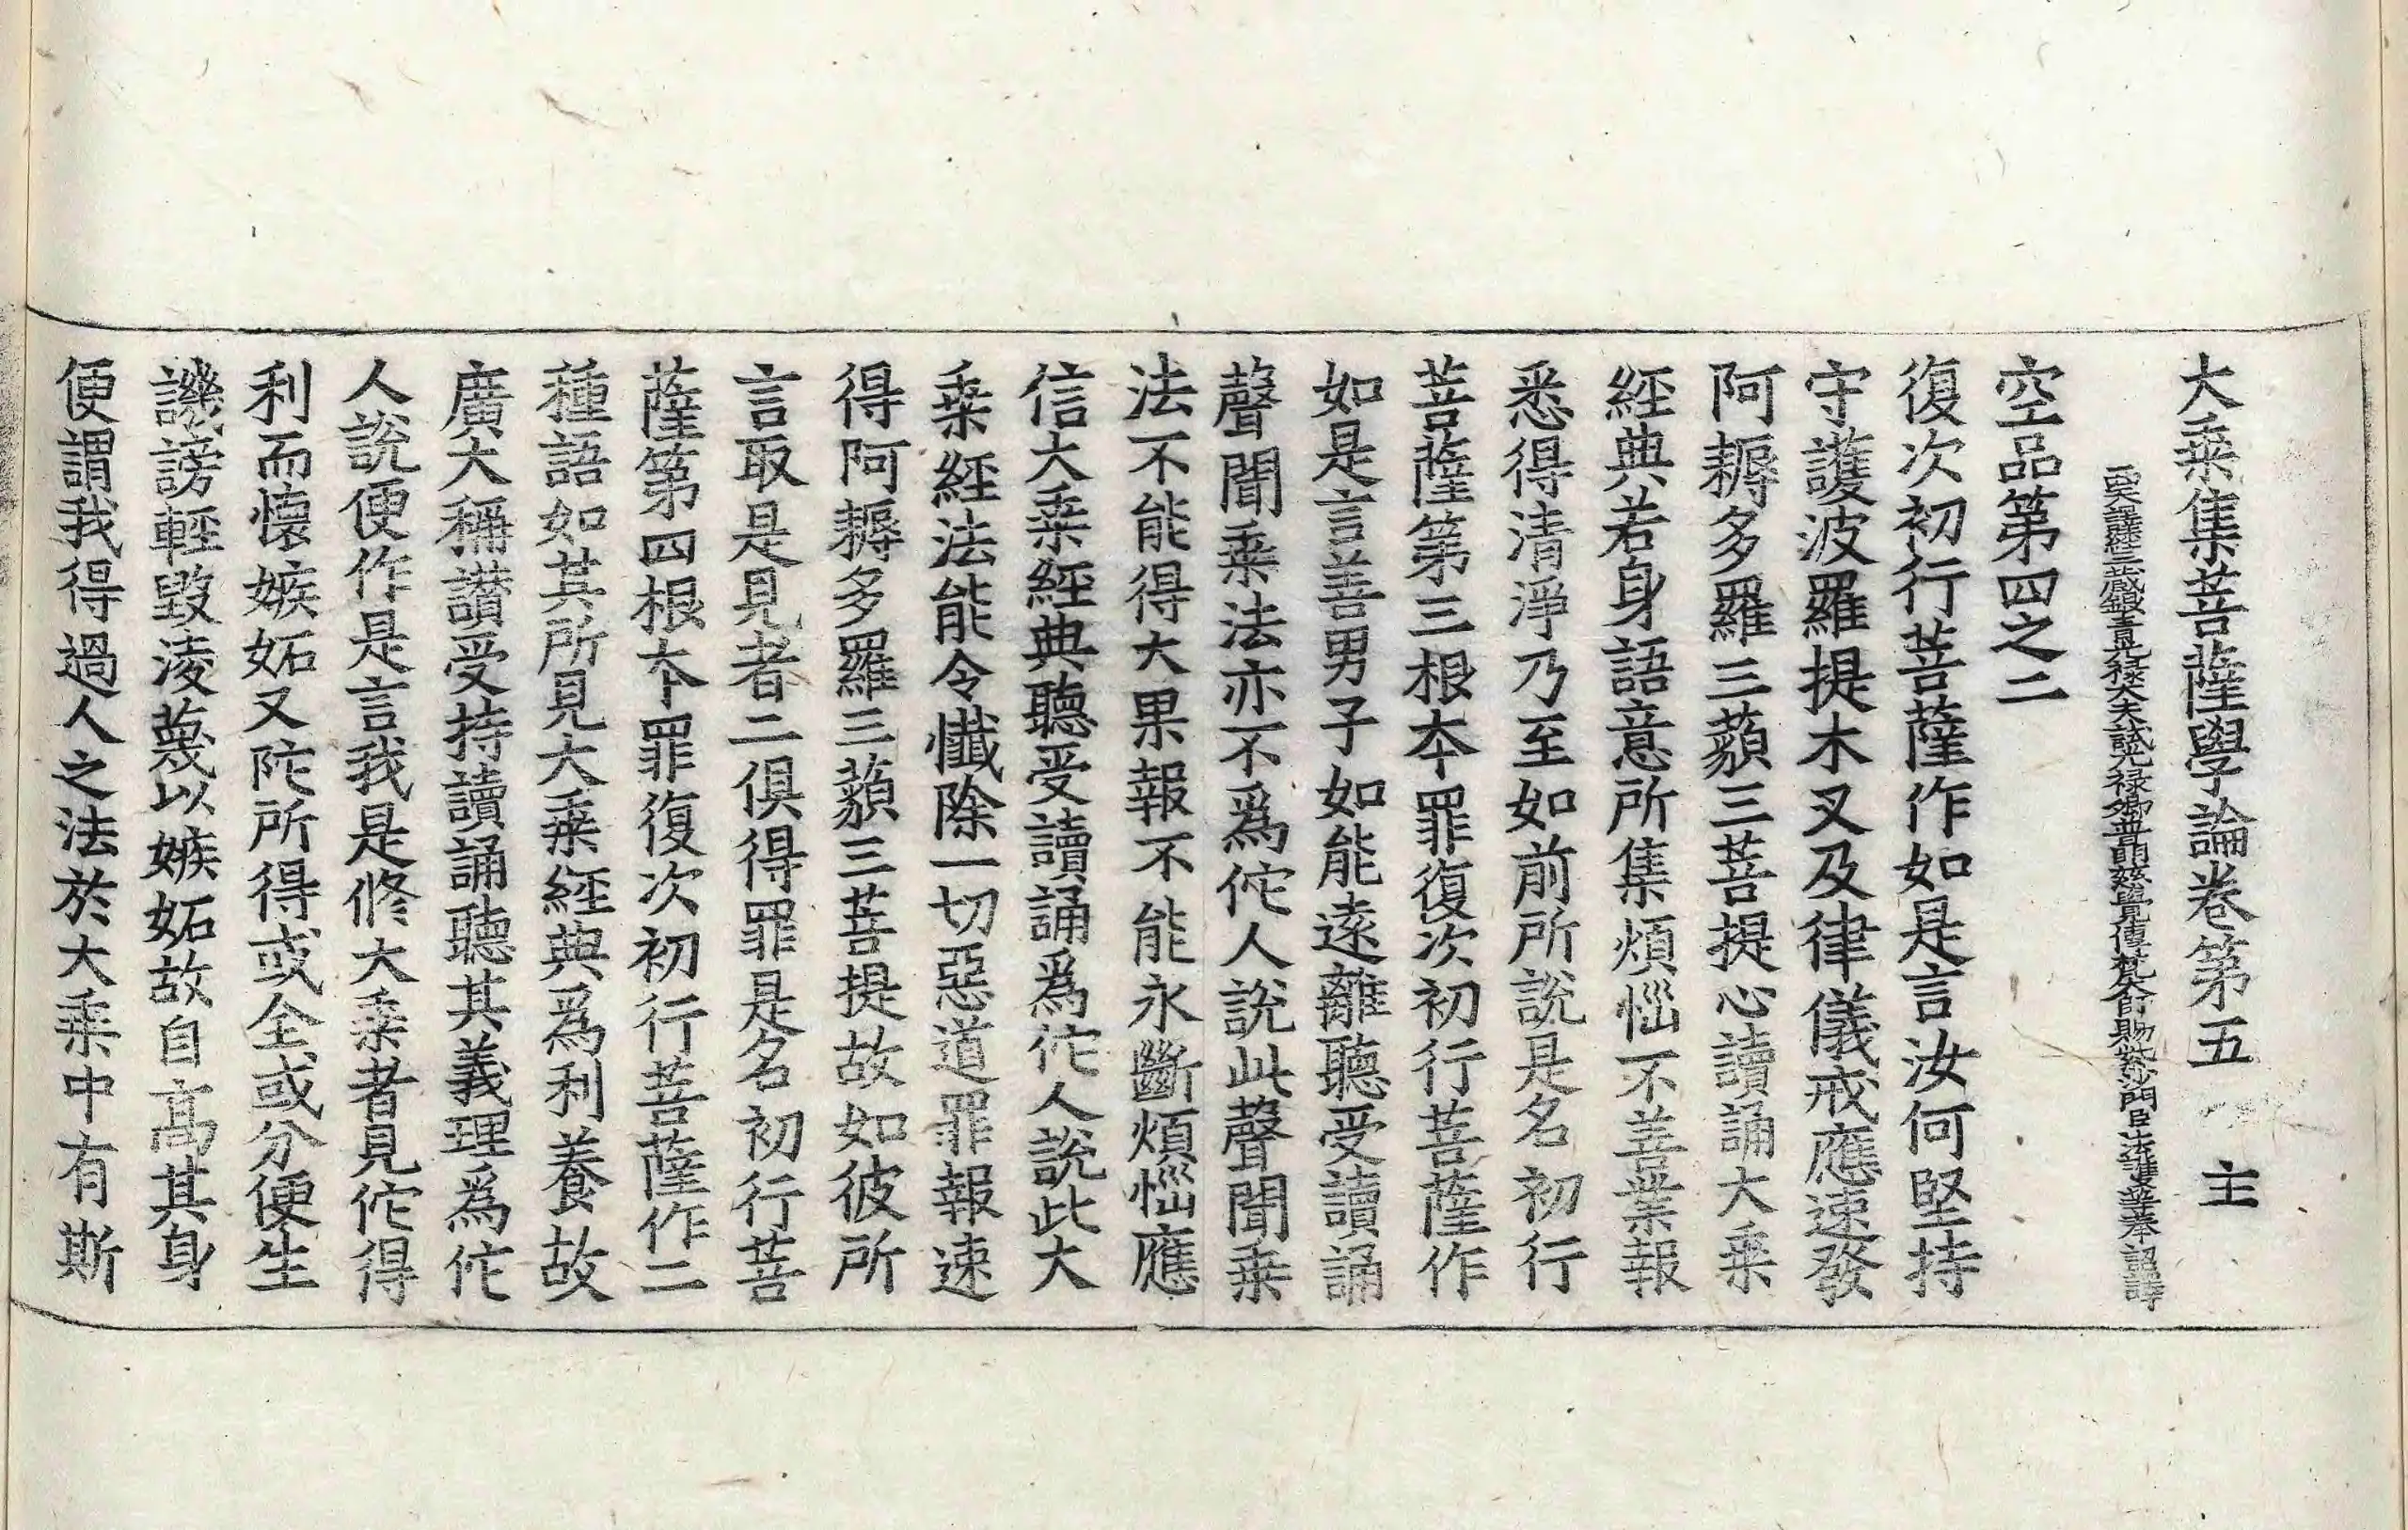 大乗集菩薩學論卷第五　主
西天譯經三藏銀青光祿大夫試光祿卿普明慈覺傳梵大師賜紫沙門臣法護等奉詔譯
空品第四之二
復次初行菩薩作如是言汝何堅持
守護波羅提木叉及律儀戒應速發
阿耨多羅三藐三菩提心讀誦大乗
經典若身語意所集煩惱不善業報
悉得清淨乃至如前所說是名初行
菩薩第三根本罪復次初行菩薩作
如是言善男子如能遠離聽受讀誦
聲聞乗法亦不爲佗人說此聲聞乗
法不能得大果報不能永斷煩惱應
信大乗經典聽受讀誦爲佗人說此大
乗經法能令懺除一切惡道罪報速
得阿耨多羅三藐三菩提故如彼所
言取是見者二俱得罪是名初行菩
薩第四根本罪復次初行菩薩作二
種語如其所見大乗經典爲利養故
廣大稱讃受持讀誦聽其義理爲佗
人說便作是言我是修大乗者見佗得
利而懷嫉妬又陀所得或全或分便生
譏謗輕毀淩蔑以嫉妬故自高其身
便謂我得過人之法於大乗中有斯